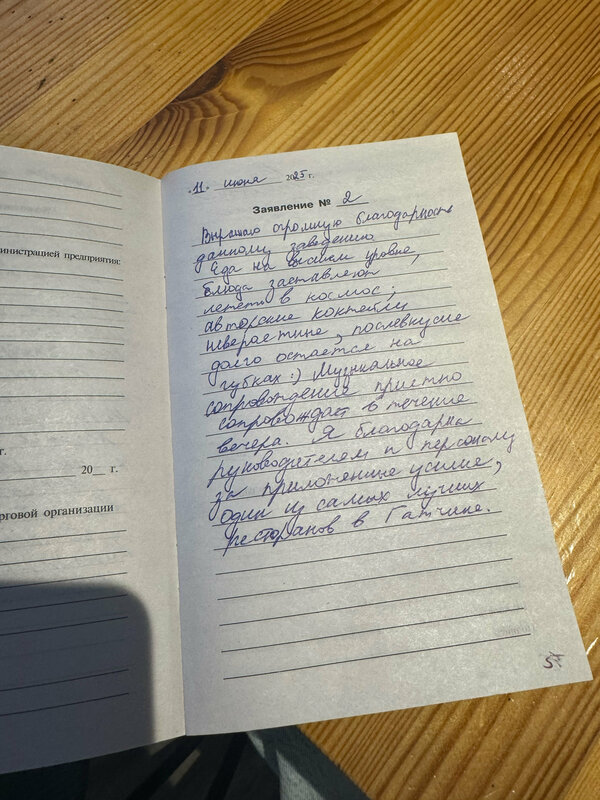 министрацией предприятия:
г.
20 г.
рговой организации
«11» июня 2025 г.
Заявление № 2
Выражаю огромную благодарность
данному заведению.
Еда на высшем уровне,
блюда заставляют
лететь в космос;
авторские коктейли
невероятные, послевкусие
долго остается на
губках:) Музыкальное
сопровождение приятно
сопровождает в течение
вечера. Я благодарна
руководителем и персоналу
за приложенные усилие,
один из самых лучших
ресторанов в Гатчине.